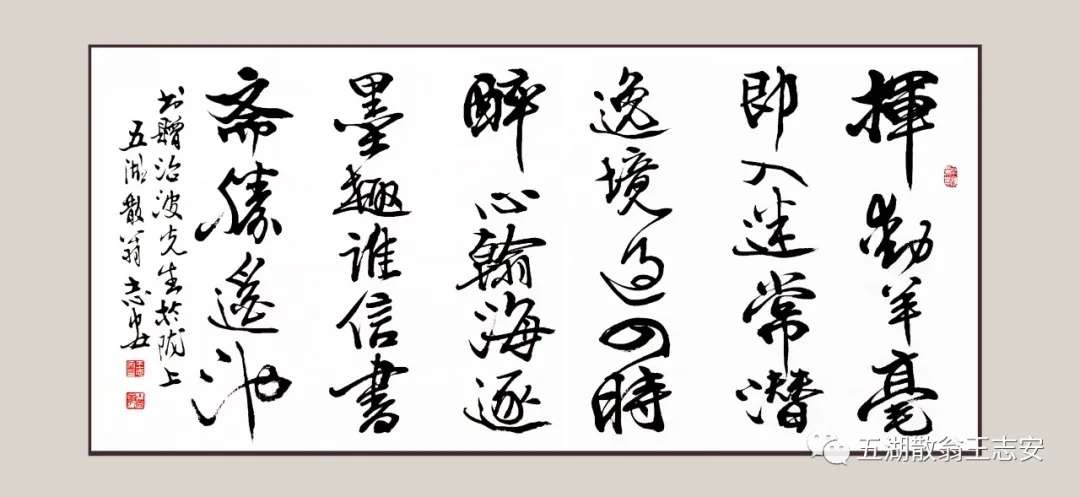 揮動羊毫
即入迷常潜
逸境過四時
醉心翰海逐
墨趣誰信書
斋勝遙池
书贈治波先生於陇上
五湖散翁志安
五湖散翁王志安